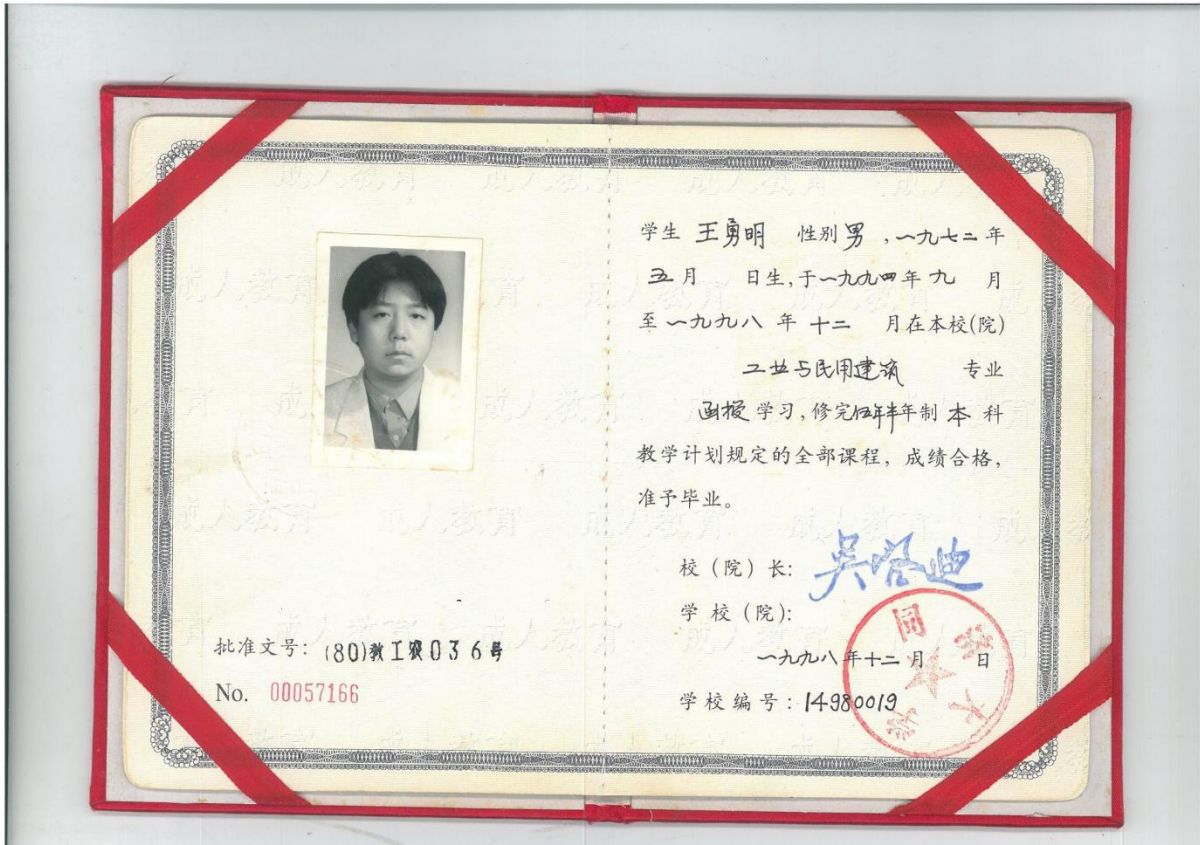 批准文号：(80)教工农036号
No. 00057166
学生 王勇明 性别 男，一九七二年
五月 日生，于一九九四年九 月
至一九九八 年 十二 月在本校(院)
工业与民用建筑 专业
函授 学习，修完伍年半年制 本 科
教学计划规定的全部课程，成绩合格，
准予毕业。
校（院）长：吴启迪
学 校（院）：
一九九八年十二月 日
学 校 编 号：14980019
同济大学
成人教育